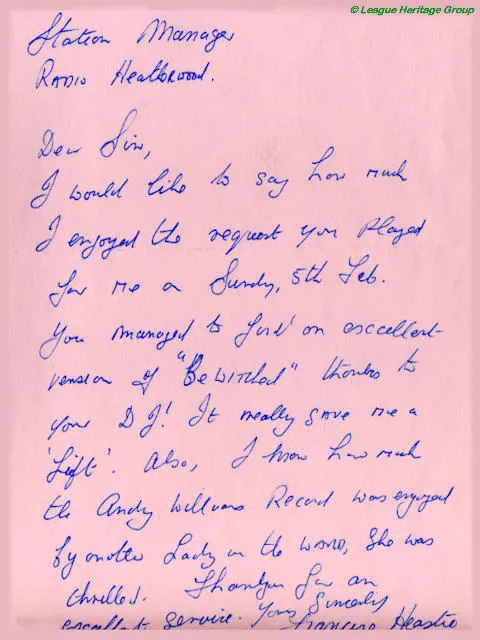 © League Heritage Group
Station Manager
Radio Heatherwood.
Dear Sir,
I would like to say how much
I enjoyed the request you played
for me on Sunday, 5th Feb.
You managed to find an exccellent
version of "Bewitched" thanks to
your D J! It really gave me a
'Lift'. Also, I know how much
the Andy Williams Record was enjoyed
by another Lady on the ward, She was
thrilled. Thankyou for an
excellent service. Yours Sincerely